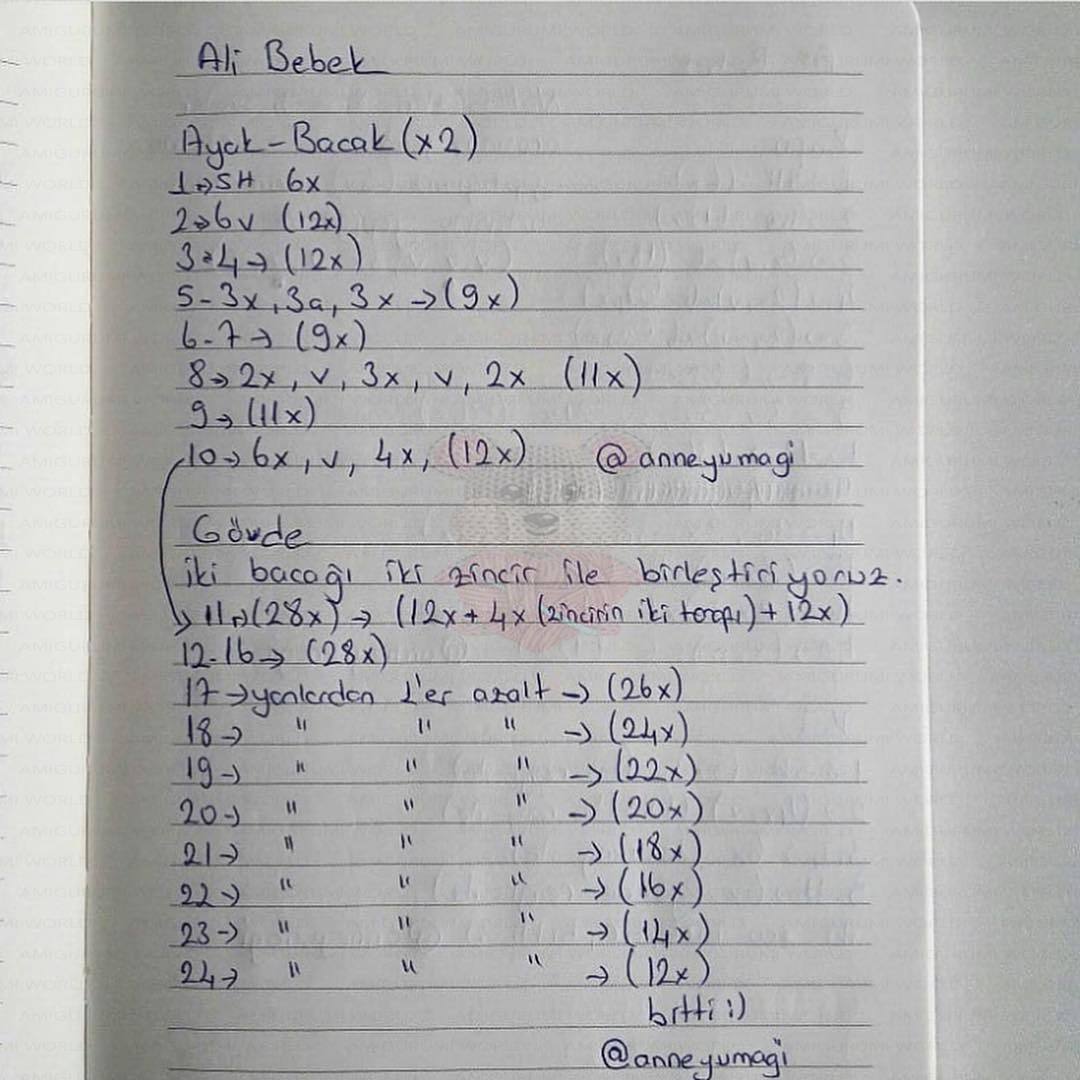 Ali Bebek
Ayak-Bacak (x2)
1→SH 6x
2→6v (12x)
3-4→ (12x)
5-3x, 3a, 3x →(9x)
6-7→ (9x)
8→2x, v, 3x, v, 2x (11x)
9→ (11x)
10→6x, v, 4x, (12x) @anneyumagi
Gövde
iki bacağı iki zincir ile birleştiriyoruz.
→ 11→(28x) → (12x+4x (zincirin iki tarafı)+12x)
12-16→ (28x)
17→yanlardan 1'er azalt → (26x)
18→ " " " → (24x)
19→ " " " → (22x)
20→ " " " → (20x)
21→ " " " → (18x)
22→ " " " → (16x)
23→ " " " → (14x)
24→ " " " → (12x)
bitti :)
@anneyumaği